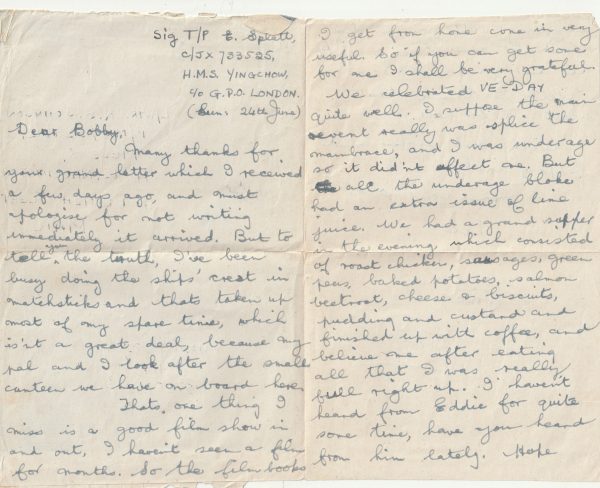 Sig T/P E. Spkett,
C/JX 733525,
H.M.S. YINGCHOW,
c/o G.P.O. LONDON.
(Sun: 24th June)
Dear Bobby,
Many thanks for
your grand letter which I received
a few days ago, and must
apologise for not writing
immediately it arrived. But to
tell you the truth, I've been
busy doing the ships' crest in
matchsticks and thats taken up
most of my spare time, which
is'nt a great deal, because my
pal and I look after the small
canteen we have on board here.
Thats one thing I
miss is a good film show in
and out, I haven't seen a film
for months. So the film books
I get from home come in very
useful. So if you can get some
for me I shall be very grateful.
We celebrated VE-DAY
quite well. I suppose the main
event really was splice the
mainbrace, and I was underage
so it did'nt affect me. But
all the underage blokes
had an extra issue of lime
juice. We had a grand supper
in the evening which consisted
of roast chicken, sausages, green
peas, baked potatoes, salmon
beetroot, cheese & biscuits,
pudding and custand and
finished up with coffee, and
believe me after eating
all that I was really
full right up. I haven't
heard from Eddie for quite
some time, have you heard
from him lately. Hope